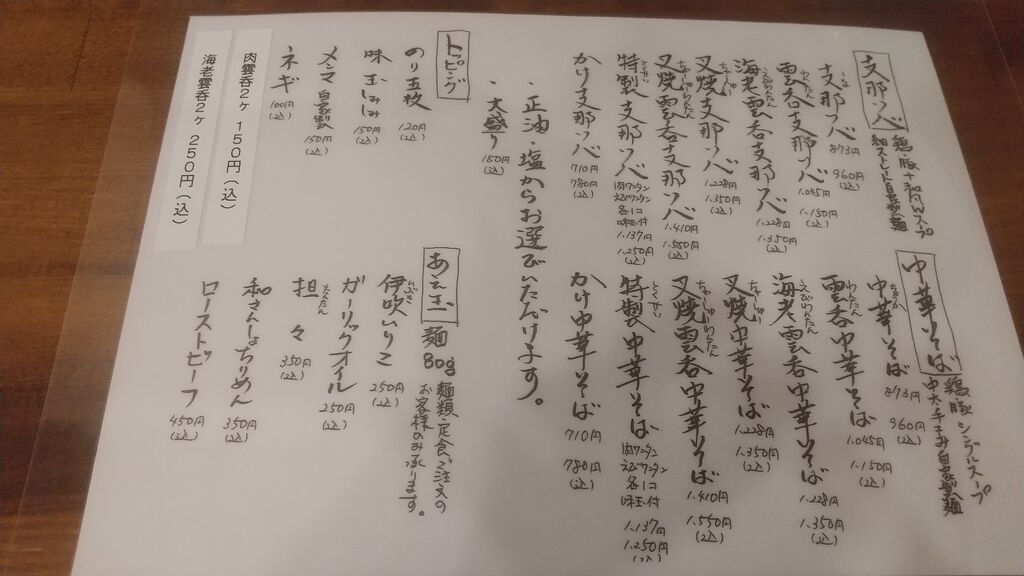 支那ソバ
鶏、豚+和風Wスープ
細ストレート自家製麺
支那ソバ 873円 960円(込)
雲呑支那ソバ 1.045円 1.150円(込)
海老雲呑支那ソバ 1.228円 1.350円(込)
叉焼支那ソバ 1.228円 1.350円(込)
叉焼雲呑支那ソバ 1.410円 1.550円(込)
特製支那ソバ 肉ワンタン えびワンタン 各1コ 味玉付 1.137円 1.250円(込)
かけ支那ソバ 710円 780円(込)
中華そば
鶏、豚シンプルスープ
中太手もみ自家製麺
中華そば 873円 960円(込)
雲呑中華そば 1.045円 1.150円(込)
海老雲呑中華そば 1.228円 1.350円(込)
叉焼中華そば 1.228円 1.350円(込)
叉焼雲呑中華そば 1.410円 1.550円(込)
特製中華そば 肉ワンタン えびワンタン 各1コ 味玉付 1.137円 1.250円(込)
かけ中華そば 710円 780円(込)
・正油・塩からお選びいただけます。
・大盛り 150円(込)
トッピング
のり五枚 120円(込)
味玉しみしみ 150円(込)
メンマ自家製 150円(込)
ネギ 100円(込)
肉雲呑2ヶ 150円(込)
海老雲呑2ヶ 250円(込)
あえ玉 麺80g
麺類、定食、ご注文の
お客様のみ承ります。
伊吹いりこ 250円(込)
ガーリックオイル 250円(込)
担々 350円(込)
和さんしょちりめん 350円(込)
ローストビーフ 450円(込)